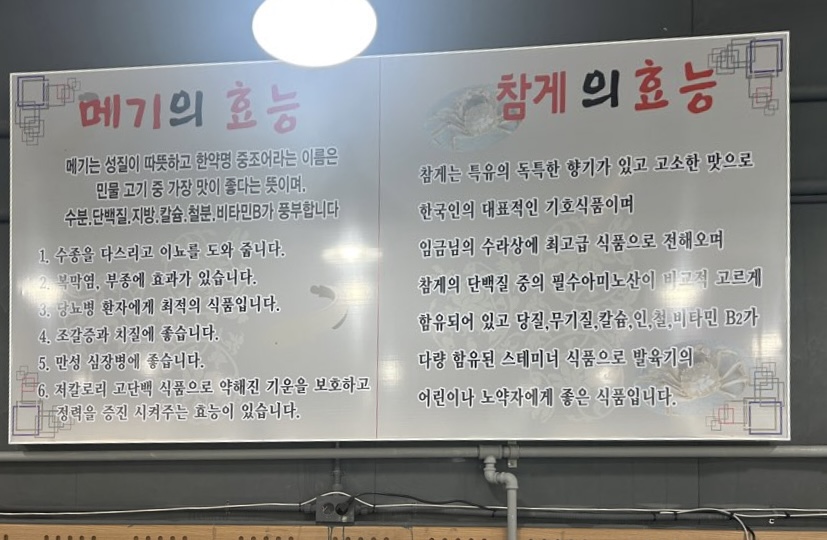 메기의 효능
메기는 성질이 따뜻하고 한약명 중조어라는 이름은
민물 고기 중 가장 맛이 좋다는 뜻이며.
수분.단백질.지방.칼슘.철분.비타민B가 풍부합니다
1. 수종을 다스리고 이뇨를 도와 줍니다.
2. 복막염, 부종에 효과가 있습니다.
3. 당뇨병 환자에게 최적의 식품입니다.
4. 조갈증과 치질에 좋습니다.
5. 만성 심장병에 좋습니다.
6. 저칼로리 고단백 식품으로 약해진 기운을 보호하고
정력을 증진 시켜주는 효능이 있습니다.
참게의효능
참게는 특유의 독특한 향기가 있고 고소한 맛으로
한국인의 대표적인 기호식품이며
임금님의 수라상에 최고급 식품으로 전해오며
참게의 단백질 중의 필수아미노산이 비교적 고르게
함유되어 있고 당질,무기질,칼슘,인,철,비타민 B2가
다량 함유된 스테미너 식품으로 발육기의
어린이나 노약자에게 좋은 식품입니다.